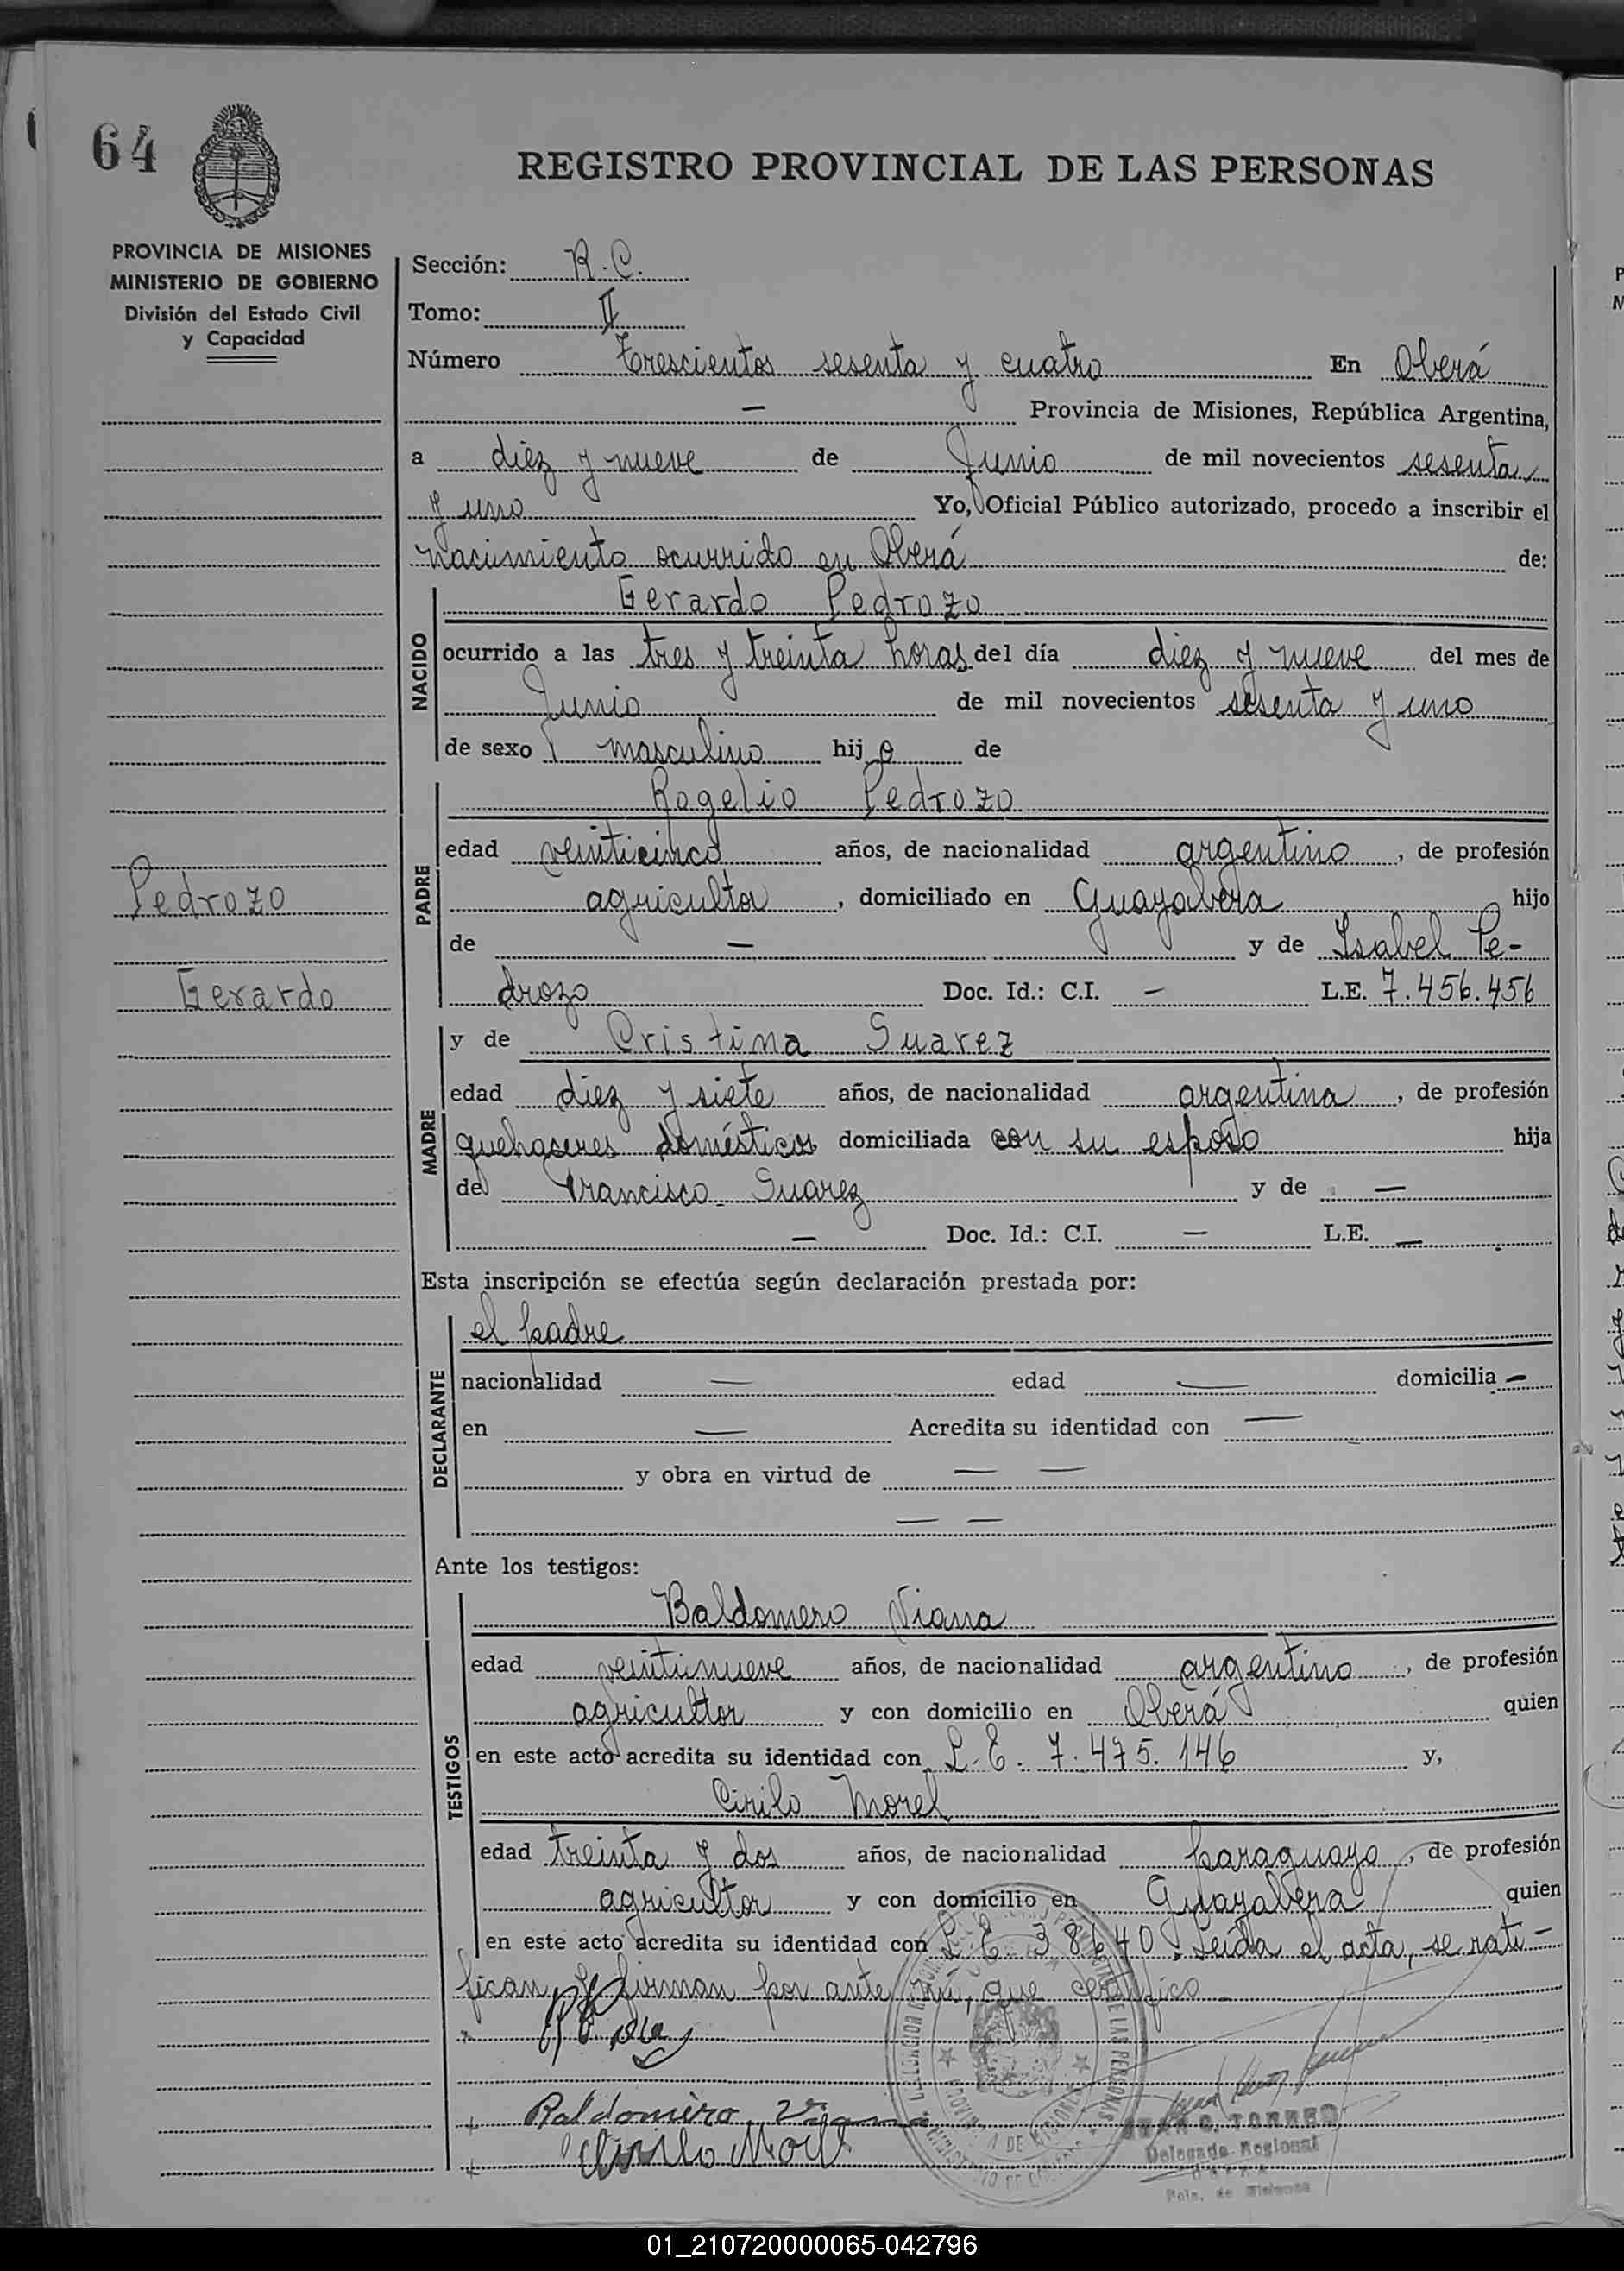 64
REGISTRO PROVINCIAL DE LAS PERSONAS
PROVINCIA DE MISIONES
MINISTERIO DE GOBIERNO
División del Estado Civil
y Capacidad
Pedrozo
Gerardo
Sección: R.C.
Tomo: II
Número Trescientos sesenta y cuatro En Oberá
— Provincia de Misiones, República Argentina,
a diez y nueve de Junio de mil novecientos sesenta
y uno Yo, Oficial Público autorizado, procedo a inscribir el
nacimiento ocurrido en Oberá de:
NACIDO
Gerardo Pedrozo
ocurrido a las tres y treinta horas del día diez y nueve del mes de
Junio de mil novecientos sesenta y uno
de sexo masculino hijo de
PADRE
Rogelio Pedrozo
edad veinticinco años, de nacionalidad argentino, de profesión
agricultor, domiciliado en Guayabera hijo
de — y de Isabel Pe-
drozo Doc. Id.: C.I. — L.E. 7.456.456
MADRE
y de Cristina Suarez
edad diez y siete años, de nacionalidad argentina, de profesión
quehaceres domésticos domiciliada con su esposo hija
de Francisco Suarez y de —
— Doc. Id.: C.I. — L.E. —
Esta inscripción se efectúa según declaración prestada por:
DECLARANTE
el padre
nacionalidad — edad — domicilia —
en — Acredita su identidad con —
y obra en virtud de — —
— —
Ante los testigos:
TESTIGOS
Baldomero Viana
edad veintinueve años, de nacionalidad argentino, de profesión
agricultor y con domicilio en Oberá quien
en este acto acredita su identidad con L.E. 7.475.146 y,
Cirilo Morel
edad treinta y dos años, de nacionalidad paraguayo, de profesión
agricultor y con domicilio en Guayabera quien
en este acto acredita su identidad con L.E. 38640. Leída el acta, se rati-
fican y firman por ante mí, que certifico
Baldomero Viana
Cirilo Morel
JUAN C. TORRES
Delegado Regional
Pcia. de Misiones
01_210720000065-042796